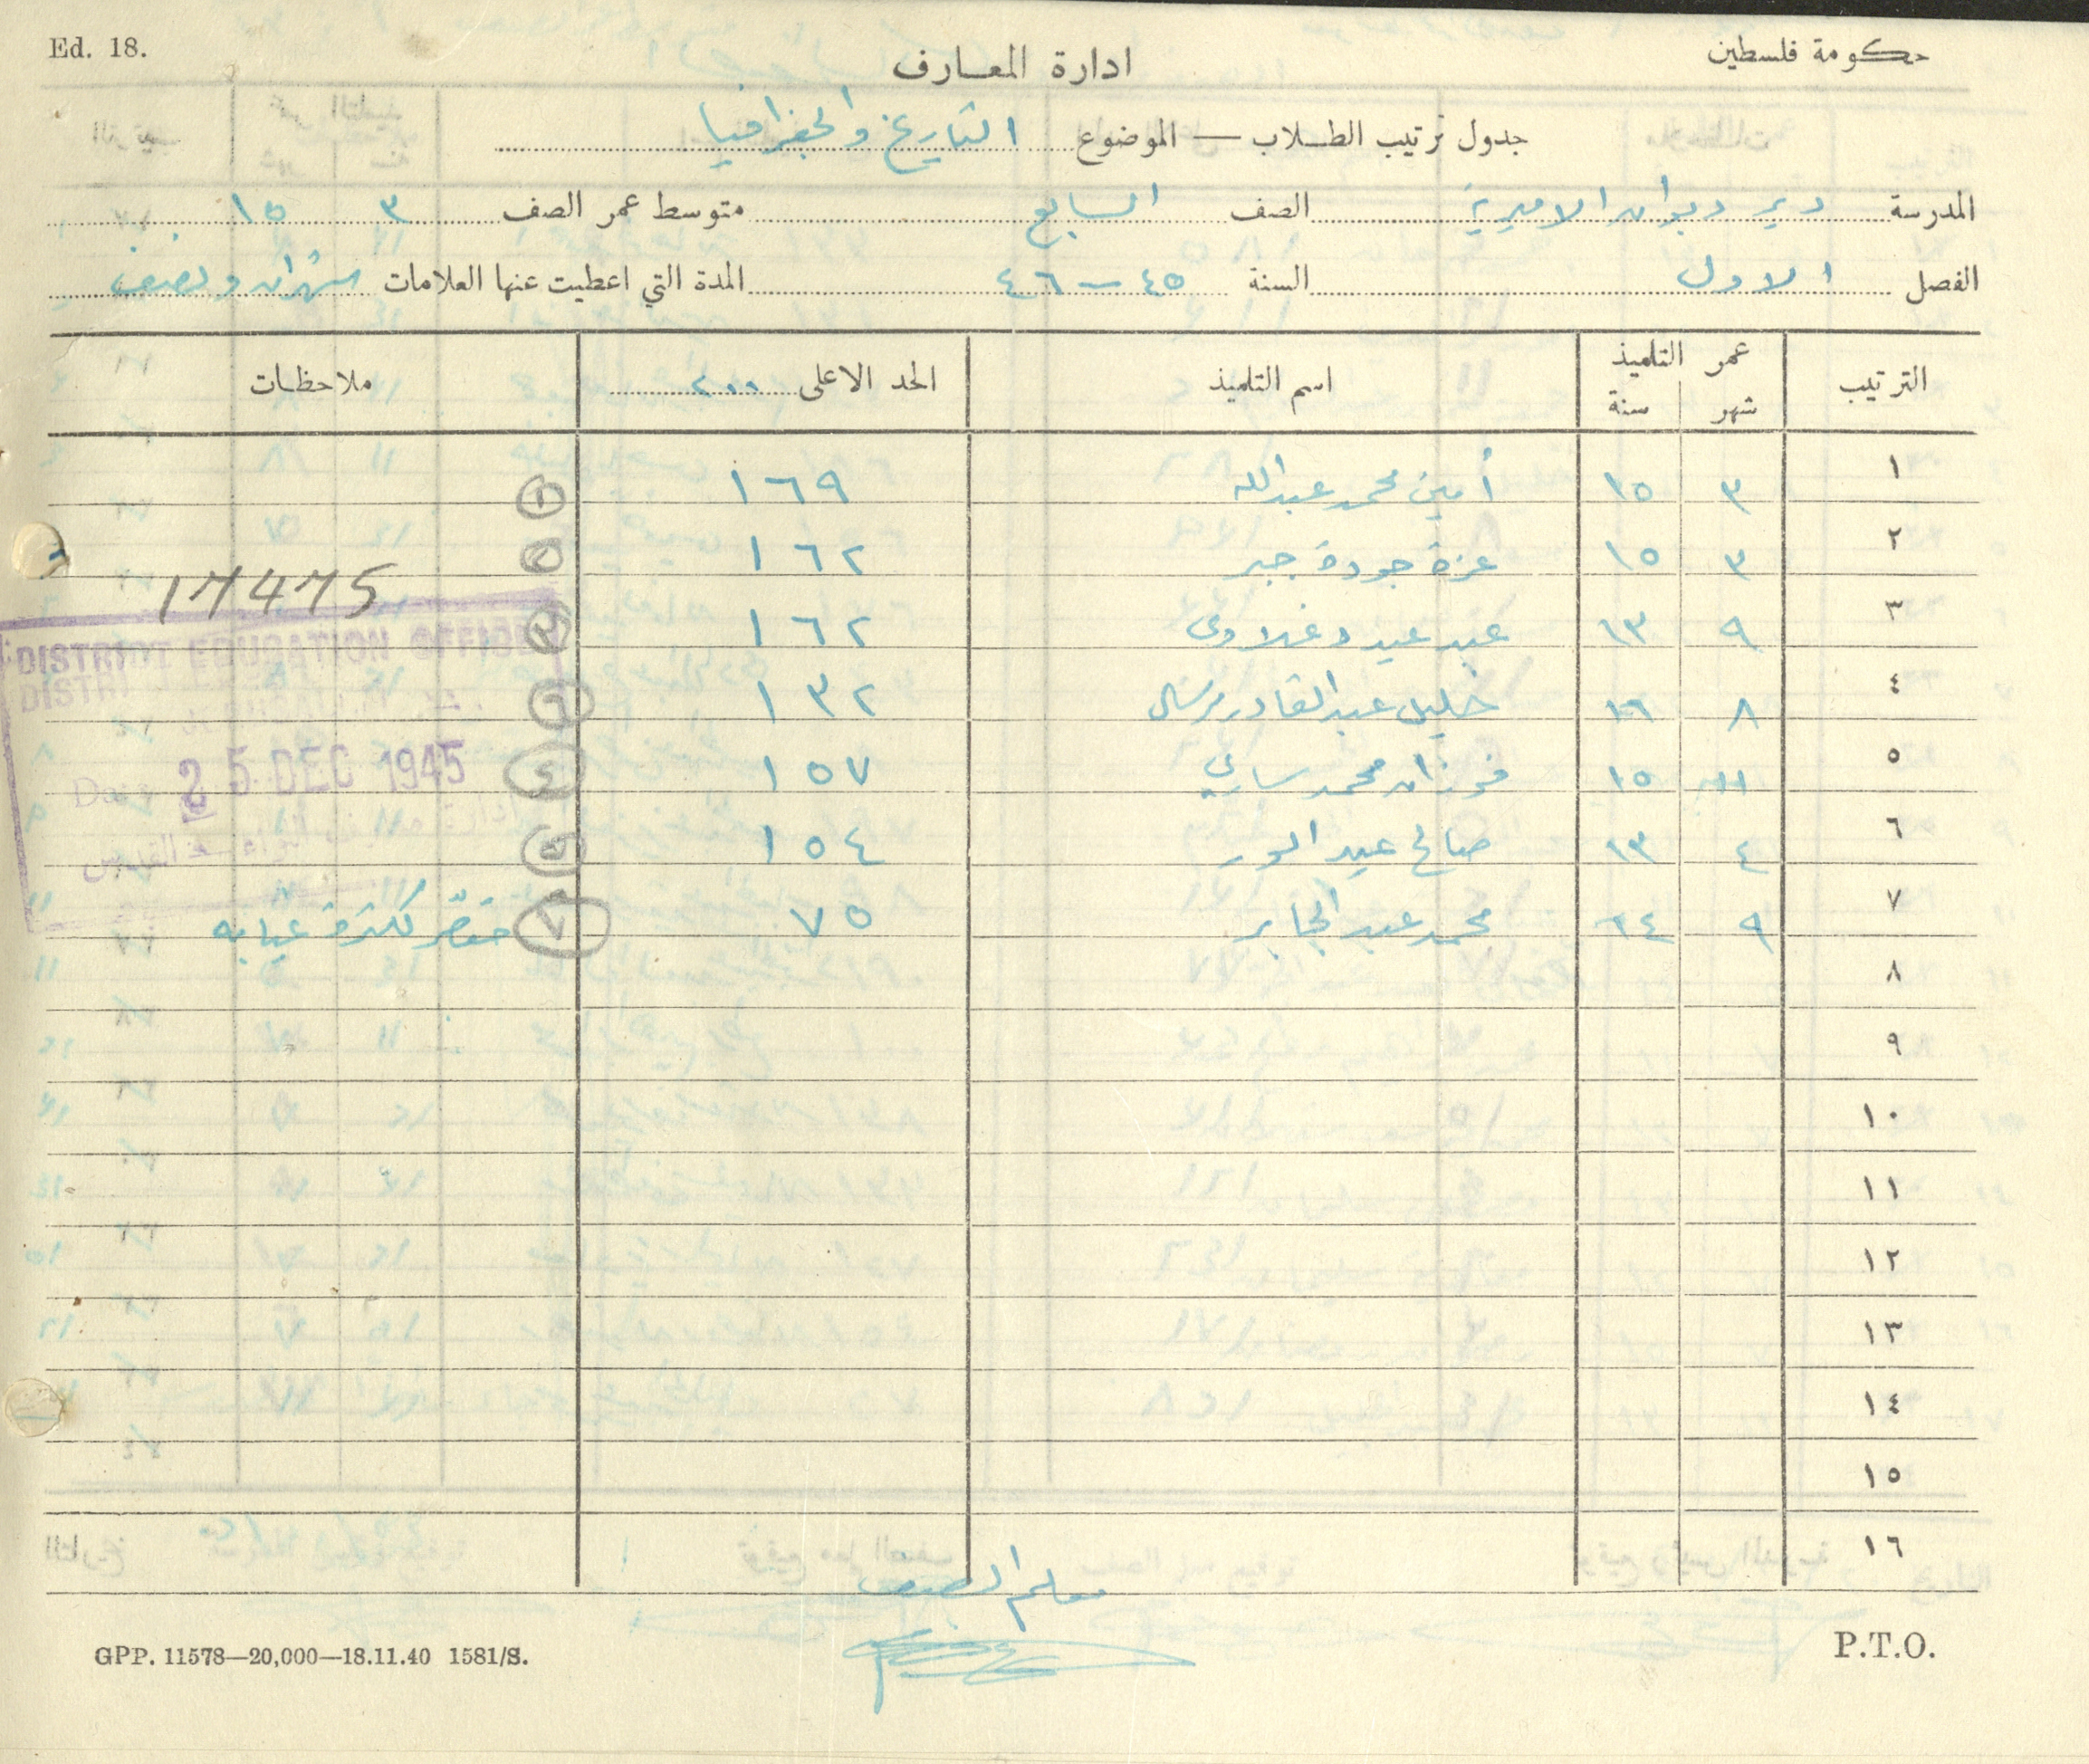 Ed. 18.
حكومة فلسطين
ادارة المعارف
جدول ترتيب الطلاب — الموضوع التاريخ والجغرافيا
المدرسة دير ديوان الاميرية الصف السابع متوسط عمر الصف ٣ ١٥
الفصل الاول السنة ٤٥ - ٤٦ المدة التي اعطيت عنها العلامات شهران ونصف
الترتيب عمر التلميذ شهر سنة اسم التلميذ الحد الاعلى ٢٠٠ ملاحظات
١ ٣ ١٥ أمين محمد عبدالله ١٦٩ ١
٢ ٣ ١٥ عزة جودة جبر ١٦٢ ٢
٣ ٩ ١٣ عبد عيد دغلاوى ١٦٢ ٣
٤ ٨ ١٦ خليل عبد القادر ١٣٢ ٦
٥ ١١ ١٥ فوزان محمد ساري ١٥٧ ٤
٦ ٤ ١٣ صالح عيد ١٥٤ ٥
٧ ٩ ١٤ محمد عبد الجابر ٧٥ ٧ مقصّر لكثرة غيابه
٨
٩
١٠
١١
١٢
١٣
١٤
١٥
١٦
17475
DISTRICT EDUCATION OFFICE
DISTRI
JERUSALEM
Date 25 DEC 1945
معلم الصف
GPP. 11578—20,000—18.11.40 1581/S.
P.T.O.